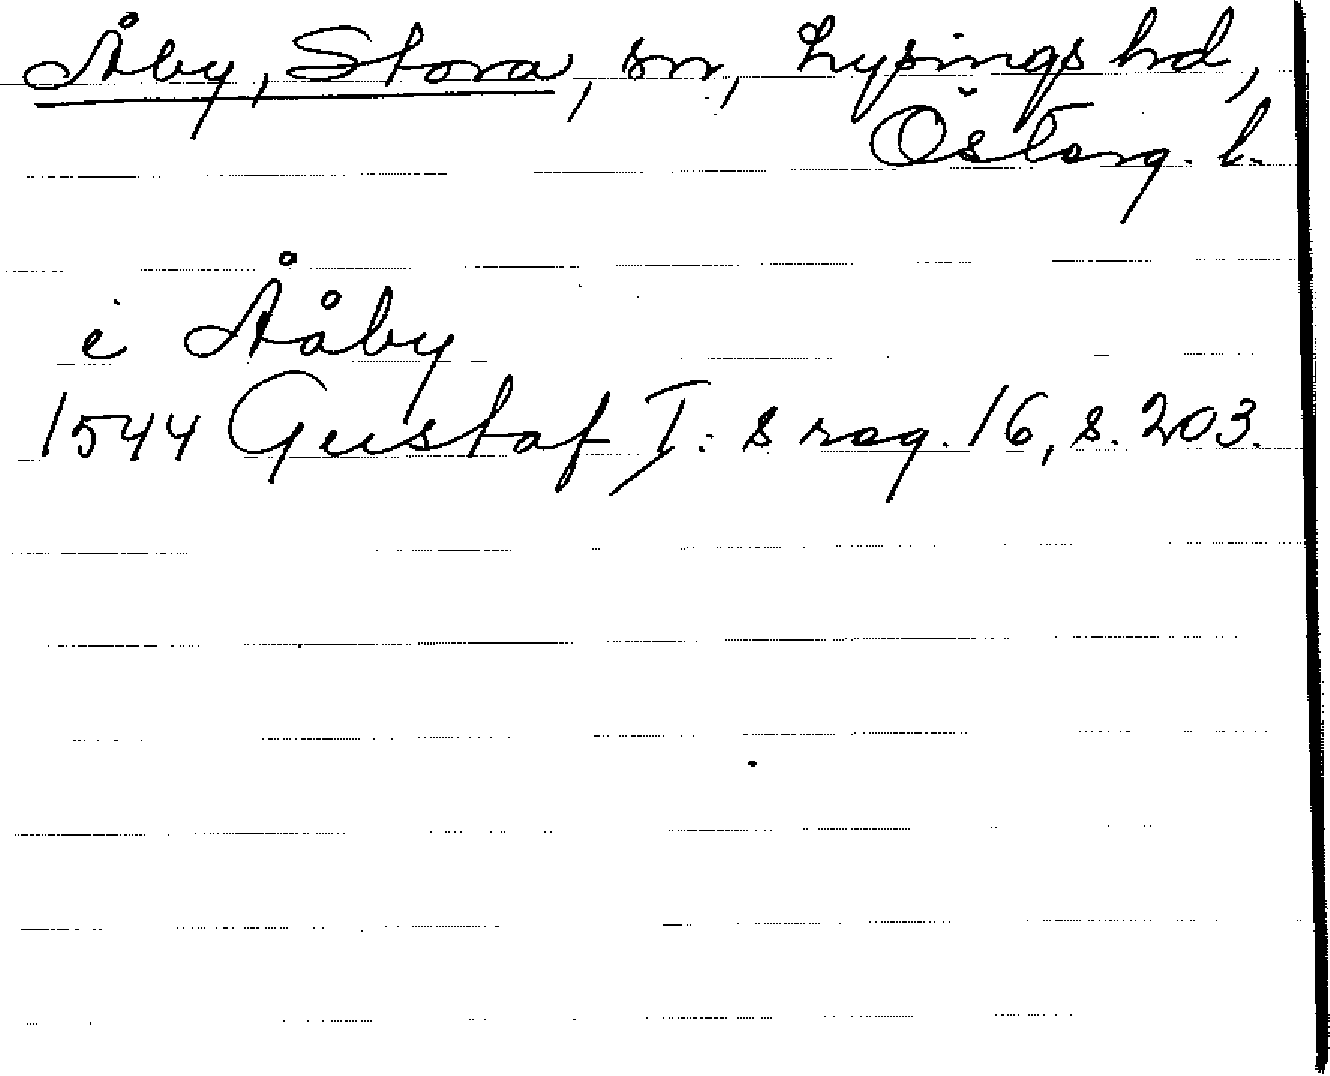 Åby, Stora, sn, Lysings hd,
Österg. l.
i Ååby
1544 Gustaf I: s reg. 16, s. 203.